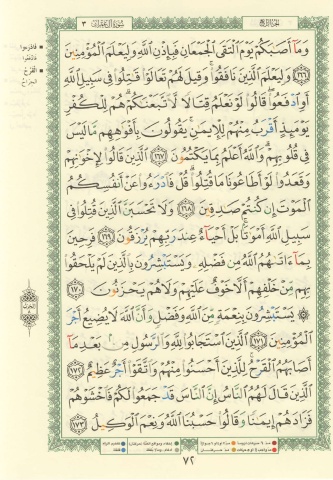 الجزء الرابع
سورة آل عمران ٣
وَمَآ أَصَٰبَكُمْ يَوْمَ ٱلْتَقَى ٱلْجَمْعَانِ فَبِإِذْنِ ٱللَّهِ وَلِيَعْلَمَ ٱلْمُؤْمِنِينَ
﴿١٦٦﴾ وَلِيَعْلَمَ ٱلَّذِينَ نَافَقُوا۟ وَقِيلَ لَهُمْ تَعَالَوْا۟ قَٰتِلُوا۟ فِى سَبِيلِ ٱللَّهِ
أَوِ ٱدْفَعُوا۟ قَالُوا۟ لَوْ نَعْلَمُ قِتَالًا لَّٱتَّبَعْنَٰكُمْ هُمْ لِلْكُفْرِ
يَوْمَئِذٍ أَقْرَبُ مِنْهُمْ لِلْإِيمَٰنِ يَقُولُونَ بِأَفْوَٰهِهِم مَّا لَيْسَ
فِى قُلُوبِهِمْ وَٱللَّهُ أَعْلَمُ بِمَا يَكْتُمُونَ ﴿١٦٧﴾ ٱلَّذِينَ قَالُوا۟ لِإِخْوَٰنِهِمْ
وَقَعَدُوا۟ لَوْ أَطَاعُونَا مَا قُتِلُوا۟ قُلْ فَٱدْرَءُوا۟ عَنْ أَنفُسِكُمُ
ٱلْمَوْتَ إِن كُنتُمْ صَٰدِقِينَ ﴿١٦٨﴾ وَلَا تَحْسَبَنَّ ٱلَّذِينَ قُتِلُوا۟ فِى
سَبِيلِ ٱللَّهِ أَمْوَٰتًۢا بَلْ أَحْيَآءٌ عِندَ رَبِّهِمْ يُرْزَقُونَ ﴿١٦٩﴾ فَرِحِينَ
بِمَآ ءَاتَىٰهُمُ ٱللَّهُ مِن فَضْلِهِۦ وَيَسْتَبْشِرُونَ بِٱلَّذِينَ لَمْ يَلْحَقُوا۟
بِهِم مِّنْ خَلْفِهِمْ أَلَّا خَوْفٌ عَلَيْهِمْ وَلَا هُمْ يَحْزَنُونَ ﴿١٧٠﴾
۞ يَسْتَبْشِرُونَ بِنِعْمَةٍ مِّنَ ٱللَّهِ وَفَضْلٍ وَأَنَّ ٱللَّهَ لَا يُضِيعُ أَجْرَ
ٱلْمُؤْمِنِينَ ﴿١٧١﴾ ٱلَّذِينَ ٱسْتَجَابُوا۟ لِلَّهِ وَٱلرَّسُولِ مِنۢ بَعْدِ مَآ
أَصَابَهُمُ ٱلْقَرْحُ لِلَّذِينَ أَحْسَنُوا۟ مِنْهُمْ وَٱتَّقَوْا۟ أَجْرٌ عَظِيمٌ ﴿١٧٢﴾
ٱلَّذِينَ قَالَ لَهُمُ ٱلنَّاسُ إِنَّ ٱلنَّاسَ قَدْ جَمَعُوا۟ لَكُمْ فَٱخْشَوْهُمْ
فَزَادَهُمْ إِيمَٰنًا وَقَالُوا۟ حَسْبُنَا ٱللَّهُ وَنِعْمَ ٱلْوَكِيلُ ﴿١٧٣﴾
فادرءوا
فادفعوا
القرح
الجراح
٧٢